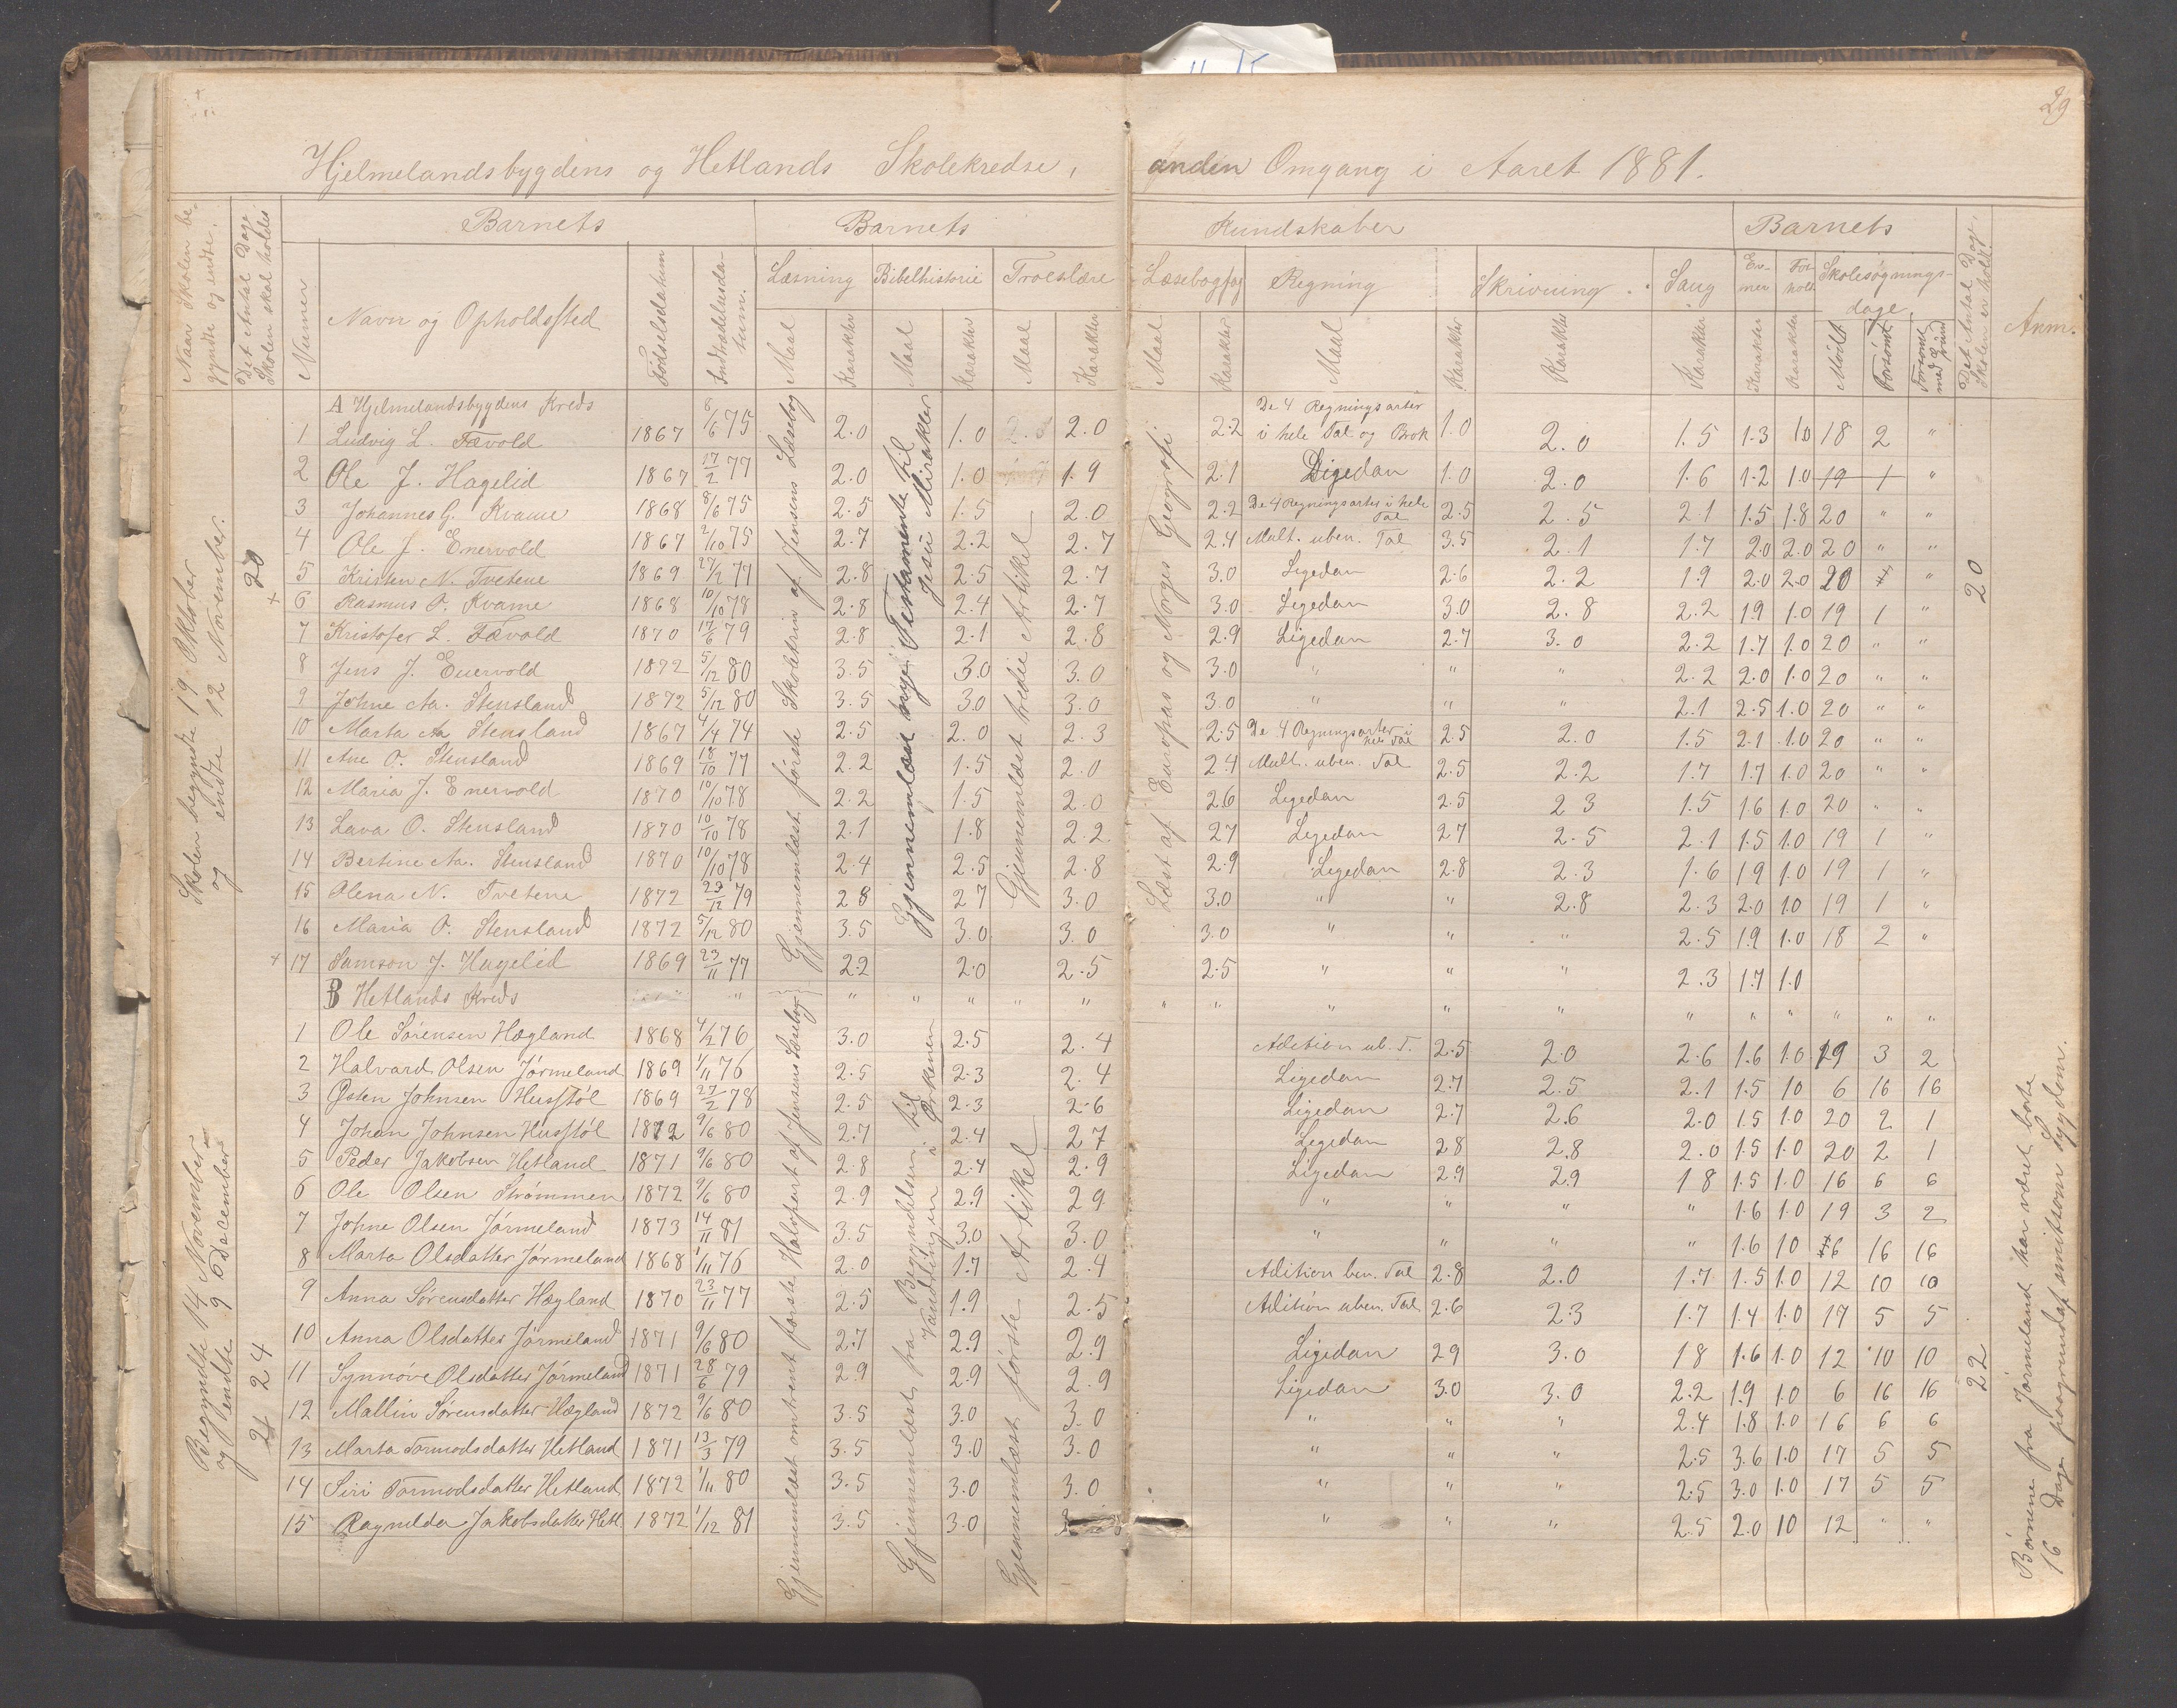 29
Hjelmelandsbygdens og Hetlands Skolekredse, anden Omgang i Aaret 1881.
Naar Skolen begyndte og endte.
Det Antal Dage Skolen skal holdes
Barnets
Barnets Kundskaber
Barnets
Det Antal Dage Skolen er holdt.
Anm.
Numer
Navn og Opholdssted
Fødselsdatum
Indtrædelsesdatum.
Læsning Bibelhistorie Troeslære Læsebogfag Regning Skrivning. Sang Evner Forhold Skolesøgningsdage.
Maal Karakter Maal Karakter Maal Karakter Maal Karakter Maal Karakter Karakter Karakter Karakter Karakter Mødt Forsømt Forsømt med Grund
Skolen begyndte 19 Oktober og endte 12 November.
20
Gjennemlæst første Skoletrin af Jensens Læsebog
Gjennemlæst nye Testamente til Jesu Mirakler
Gjennemlæst tredie Artikel
Læst af Europas og Norges Geografi
20
A Hjelmelandsbygdens Kreds
1 Ludvig L. Fævold 1867 8/6 75 2.0 1.0 2.0 2.2 De 4 Regningsarter i hele Tal og Brok 1.0 2.0 1.5 1.3 1.0 18 2 "
2 Ole J. Hagelid 1867 17/2 77 2.0 1.0 1.9 2.1 Ligedan 1.0 2.0 1.6 1.2 1.0 19 1 "
3 Johannes G. Kvame 1868 8/6 75 2.5 1.5 2.0 2.2 De 4 Regningsarter i hele Tal 2.5 2.5 2.1 1.5 1.8 20 " "
4 Ole J. Enervold 1867 2/10 75 2.7 2.2 2.7 2.4 Mult. uben. Tal 3.5 2.1 1.7 2.0 2.0 20 " "
5 Kristen N. Tvetene 1869 27/2 77 2.8 2.5 2.7 3.0 Ligedan 2.6 2.2 1.9 2.0 2.0 20 "
+ 6 Rasmus O. Kvame 1868 10/10 78 2.8 2.4 2.7 3.0 Ligedan 3.0 2.8 2.2 1.9 1.0 19 1 "
7 Kristofer L. Fævold 1870 17/6 79 2.8 2.1 2.8 2.9 Ligedan 2.7 3.0 2.2 1.7 1.0 20 " "
8 Jens J. Enervold 1872 5/12 80 3.5 3.0 3.0 3.0 " " " 2.2 2.0 1.0 20 " "
9 Johne Aa. Stensland 1872 5/12 80 3.5 3.0 3.0 3.0 " " " 2.1 2.5 1.0 20 " "
10 Marta Aa Stensland 1867 4/4 74 2.5 2.0 2.3 2.5 De 4 Regningsarter i hele Tal 2.5 2.0 1.5 2.1 1.0 20 " "
11 Ane O. Stensland 1869 18/10 77 2.2 1.5 2.0 2.4 Mult. uben. Tal 2.5 2.2 1.7 1.7 1.0 20 " "
12 Maria J. Enervold 1870 10/10 78 2.2 1.5 2.0 2.6 Ligedan 2.5 2.3 1.5 1.6 1.0 20 " "
13 Lava O. Stensland 1870 10/10 78 2.1 1.8 2.2 2.7 Ligedan 2.7 2.5 2.1 1.5 1.0 19 1 "
14 Bertine Aa. Stensland 1870 10/10 78 2.4 2.5 2.8 2.9 Ligedan 2.8 2.3 1.6 1.9 1.0 19 1 "
15 Olena N. Tvetene 1872 29/12 79 2.8 2.7 3.0 3.0 " " 2.8 2.3 2.0 1.0 19 1 "
16 Maria O. Stensland 1872 5/12 80 3.5 3.0 3.0 3.0 " " " 2.5 1.9 1.0 18 2 "
+ 17 Samson J. Hagelid 1869 23/11 77 2.2 2.0 2.5 2.5 " " " 2.3 1.7 1.0
B Hetlands Kreds " " " " " " " " " " " " " " " "
Begyndte 14 November og endte 9 December
24
24
Gjennemlæst omtrent første Halvpart af Jensens Læsebog
Gjennemlæst fra Begyndelsen til Vandringen i Ørkenen
Gjennemlæst første Artikel
22
Børnene fra Jørmeland har været borte 16 Dage paagrundaf smitsom Sygdom.
1 Ole Sørensen Hægland 1868 4/2 76 3.0 2.5 2.4 Adition ub. T. 2.5 2.0 2.6 1.6 1.0 19 3 2
2 Halvard Olsen Jørmeland 1869 1/11 76 2.5 2.3 2.4 Ligedan 2.7 2.5 2.1 1.5 1.0 6 16 16
3 Østen Johnsen Husstøl 1869 27/2 78 2.5 2.3 2.6 Ligedan 2.7 2.6 2.0 1.5 1.0 20 2 1
4 Johan Johnsen Husstøl 1872 9/6 80 2.7 2.4 2.7 Ligedan 2.8 2.8 2.0 1.5 1.0 20 2 1
5 Peder Jakobsen Hetland 1871 9/6 80 2.8 2.4 2.9 Ligedan 2.9 2.9 1.8 1.5 1.0 16 6 6
6 Ole Olsen Strømmen 1872 9/6 80 2.9 2.9 2.9 " " " " 1.6 1.0 19 3 2
7 Johne Olsen Jørmeland 1873 14/11 81 3.5 3.0 3.0 " " " " 1.6 1.0 6 16 16
8 Marta Olsdatter Jørmeland 1868 1/11 76 2.0 1.7 2.4 Adition ben. Tal 2.8 2.0 1.7 1.5 1.0 12 10 10
9 Anna Sørensdatter Hægland 1870 23/11 77 2.5 1.9 2.5 Adition uben. Tal 2.6 2.3 1.7 1.4 1.0 17 5 5
10 Anna Olsdatter Jørmeland 1871 9/6 80 2.7 2.9 2.9 Ligedan 2.9 3.0 1.8 1.6 1.0 12 10 10
11 Synnøve Olsdatter Jørmeland 1871 28/6 79 2.9 2.9 2.9 Ligedan 3.0 3.0 2.2 1.9 1.0 6 16 16
12 Mallin Sørensdatter Hægland 1872 9/6 80 3.5 3.0 3.0 " " " 2.4 1.8 1.0 16 6 6
13 Marta Tormodsdatter Hetland 1871 13/3 79 3.5 3.0 3.0 " " " 2.5 3.6 1.0 17 5 5
14 Siri Tormodsdatter Hetland 1872 1/11 80 3.5 3.0 3.0 " " " 2.5 3.0 1.0 17 5 5
15 Ragnilda Jakobsdatter Hetl. 1872 1/12 81 3.5 3.0 " " " 2.5 2.0 1.0 12 " "